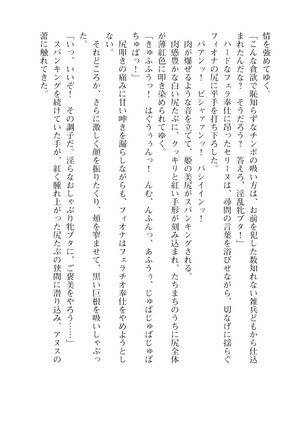 情を強めてゆく。
「こんな貪欲で恥知らずなチンポの吸い方は、お前を犯した数知れない雑兵どもから仕込
まれたんだな？　そうだろう？　答えろ、淫乱牝ブタ！」
ハードなフェラ奉仕に昂ったセリーヌは、尋問の言葉を浴びせながら、切なげに揺らぐ
フィオナの尻に平手を打ち下ろした。
パアンッ！　ピシャァアンッ！　パシイインッ！
肉が爆ぜるような音を立てて、姫の美尻がスパンキングされる。
肉感豊かな白い尻たぶに、クッキリと紅い手形が刻み込まれ、たちまちのうちに尻全体
が薄紅色に叩き染められてゆく。
「きゅふふうっ！　はぐううぅんっ！　んむ、んふんっ、あふうぅ、じゅばじゅばじゅば
ちゅばっ！」
尻叩きの痛みに甘い呻きを漏らしながらも、フィオナはフェラチオ奉仕をやめようとし
ない。
それどころか、さらに激しく顔を振りたくり、頬を窄ませて、黒い巨根を吸いしゃぶっ
た。
「いっ、いいぞ！　その調子だ。淫らなおしゃぶり牝ブタに、ご褒美をやろう……」
スパンキングを続けていた手が、紅く腫れ上がった尻たぶの狭間に潜り込み、アヌスの
蕾に触れてきた。